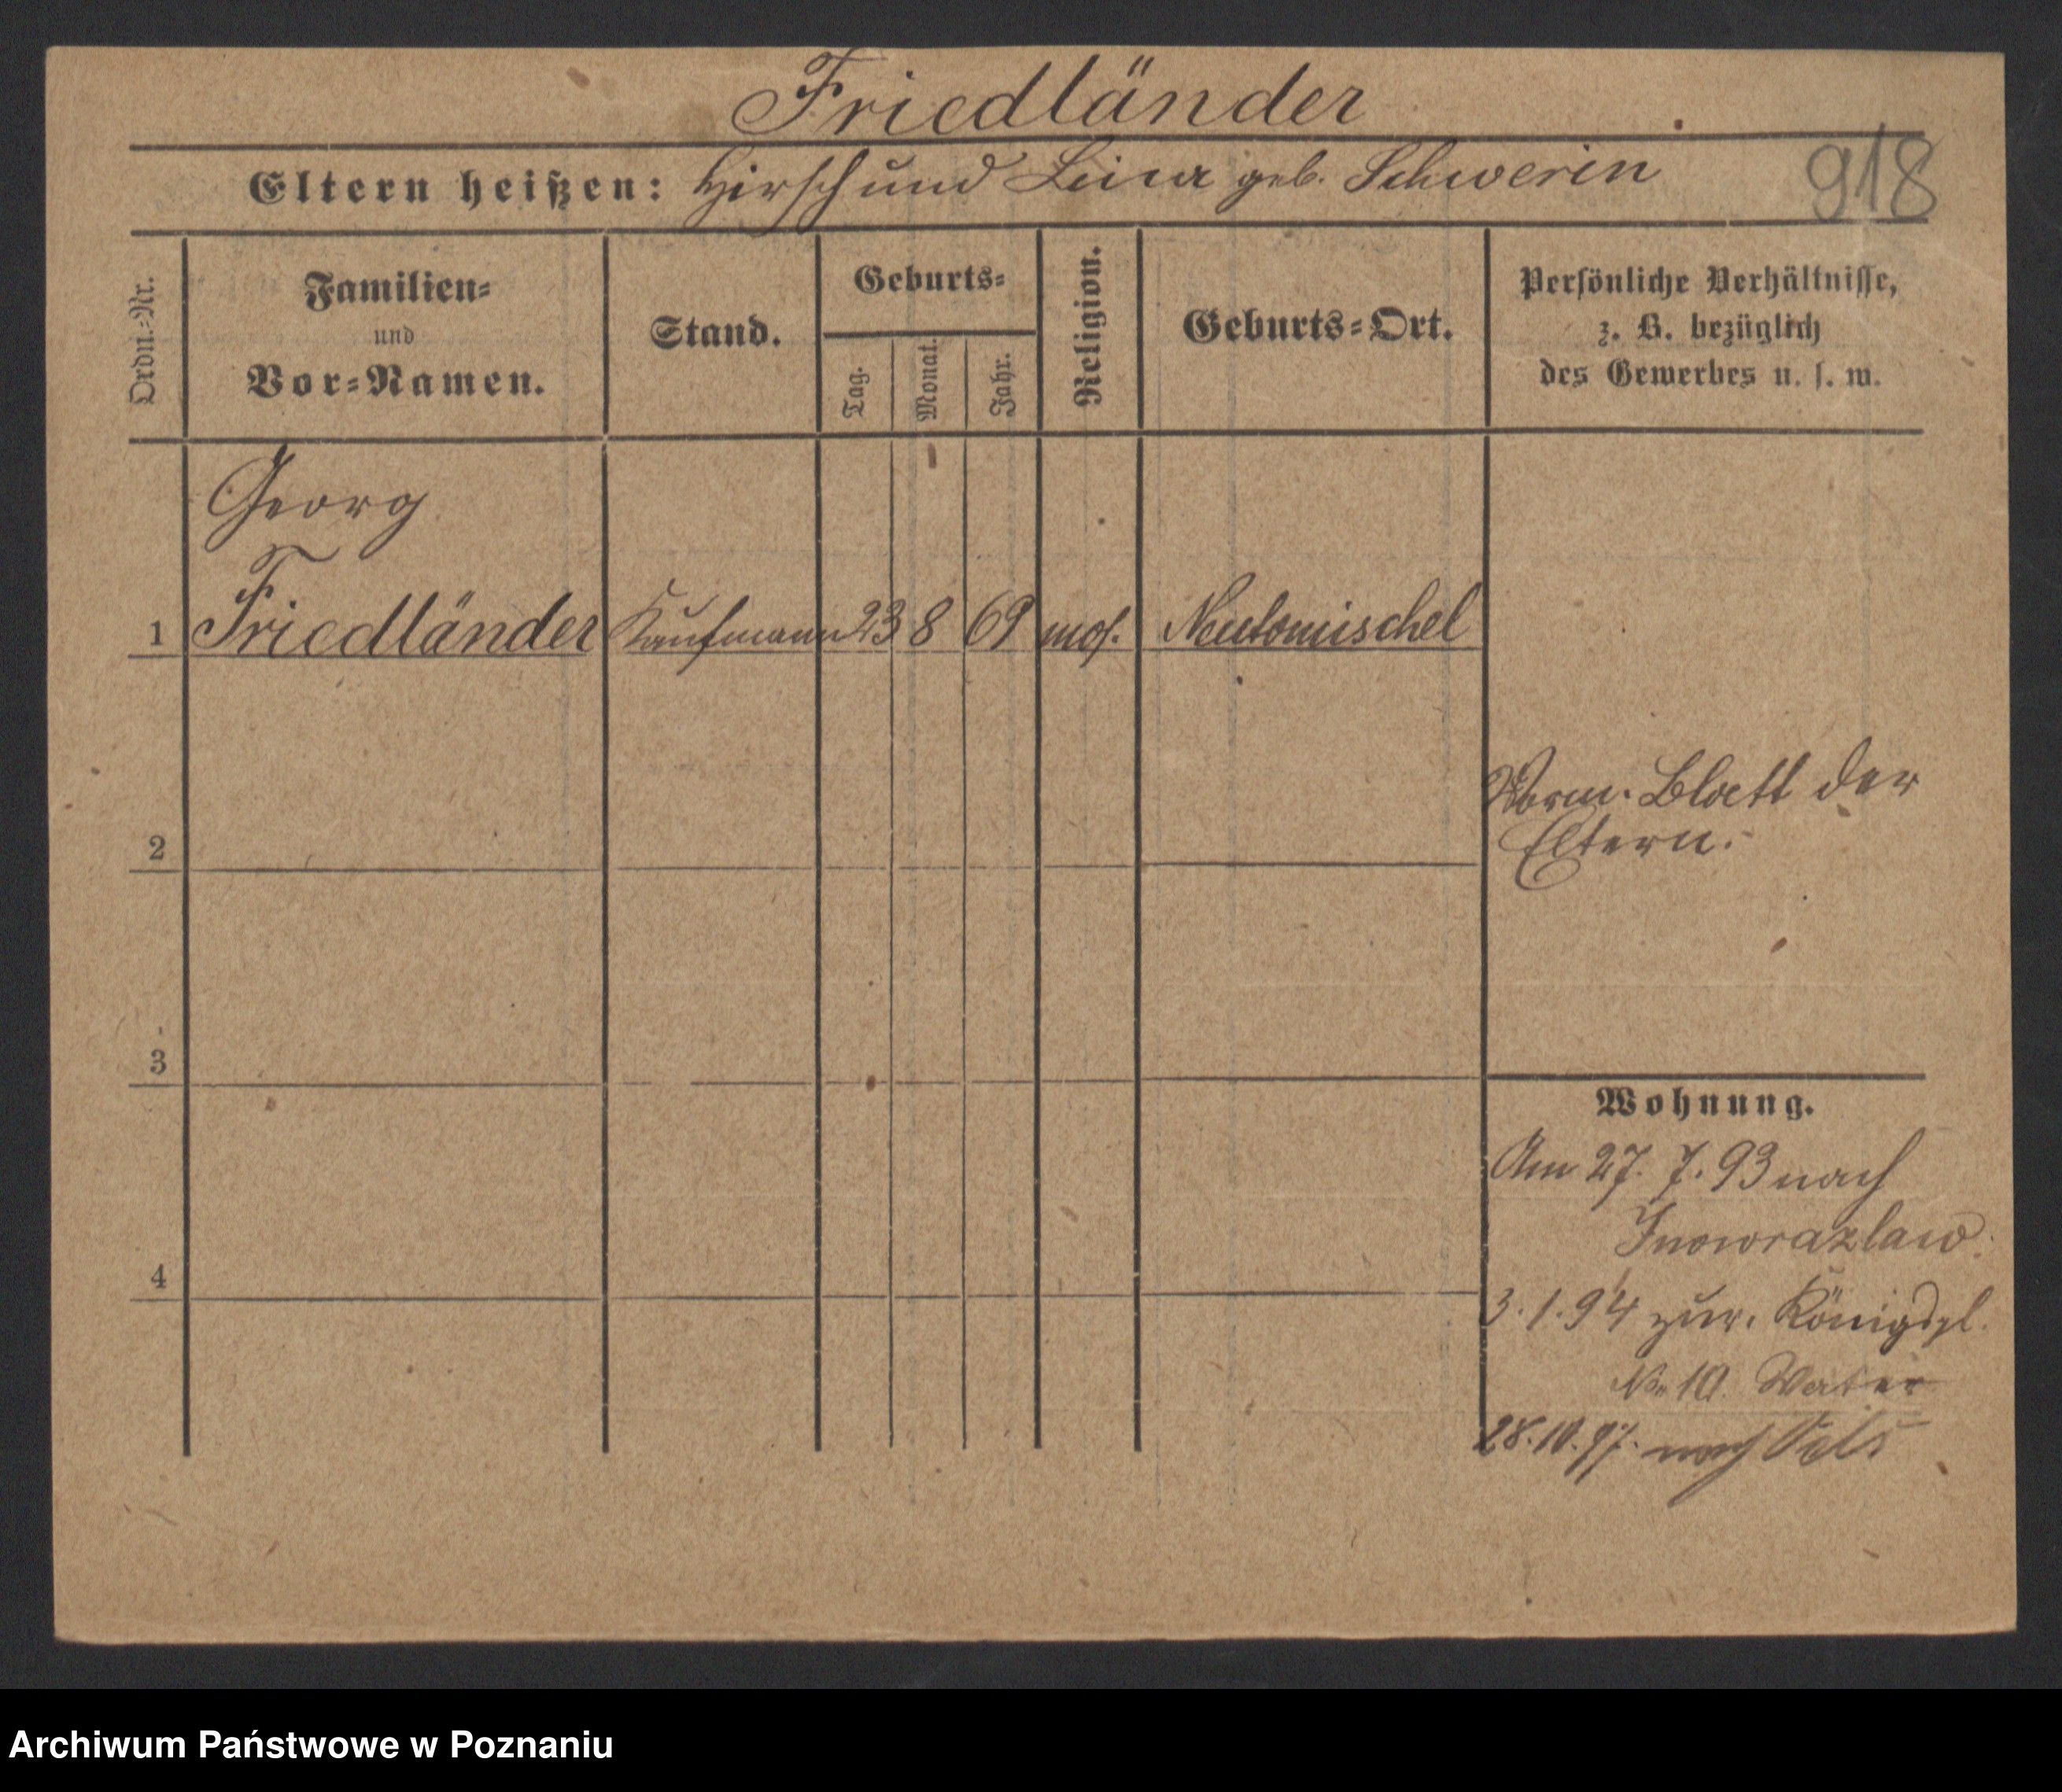 Friedländer
Eltern heißen: Hirsch und Lina geb. Schwerin
918
Ordn.-Nr.
Familien-
und
Vor-Namen.
Stand.
Geburts-
Tag.
Monat.
Jahr.
Religion.
Geburts-Ort.
Persönliche Verhältnisse,
z. B. bezüglich
des Gewerbes u. s. w.
Georg
1 Friedländer Kaufmann 23 8 69 mos. Neutomischel
Vorm. Blatt der
Eltern.
2
3
Wohnung.
Am 27. 7. 93 nach
Inowrazlaw.
4
3. 1. 94 zur. Königspl.
No 10. Vater
28.10.97. nach Oels
Archiwum Państwowe w Poznaniu